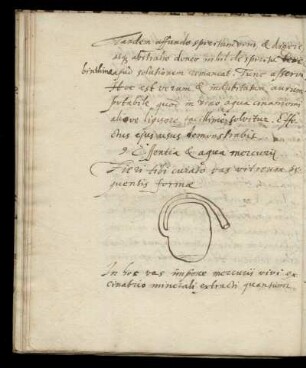 Tandem affundo spiritum vini & digere
atq abstraho donec nihil de spiritu tere
binthinae solutionem remaneat. Tunc asserva
Hoc est verum & indubitatum aurum
potabile quod in vino aqua cinamomi
aliove liquore facillime solvitur. Effe
ctus ejus usus demonstrabit.
Essentia & aqua mercurii
Fieri tibi curato vas vitreum se
quentis formae
In hoc vas impone mercurii vivi ex
cinabrio minerali extracti quantum